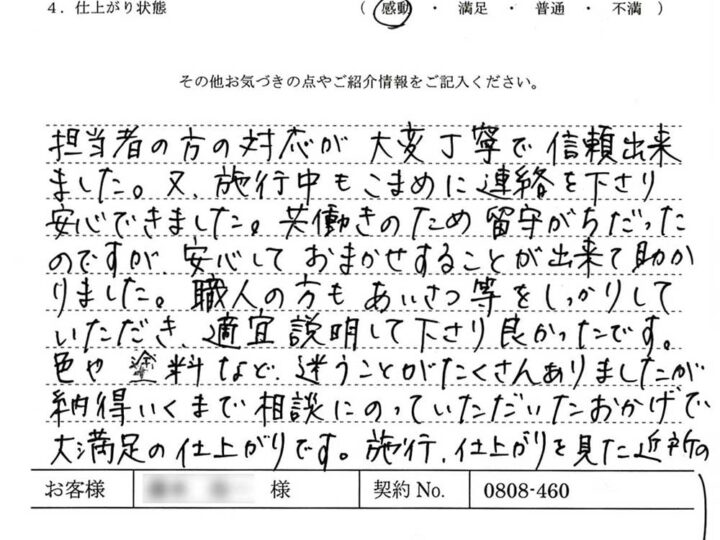 4．仕上がり状態　（ 感動 ・ 満足 ・ 普通 ・ 不満 ）
その他お気づきの点やご紹介情報をご記入ください。
担当者の方の対応が 大変丁寧で 信頼出来
ました。又、施行中もこまめに連絡を下さり
安心できました。共働きのため留守がちだった
のですが、安心しておまかせすることが出来て助か
りました。職人の方も あいさつ等をしっかりして
いただき、適宜説明して下さり良かったです。
色や塗料など、迷うことがたくさんありましたが
納得いくまで相談にのっていただいたおかげで
大満足の仕上がりです。施行、仕上がりを見た近所の
お客様　様　契約 No.　0808-460